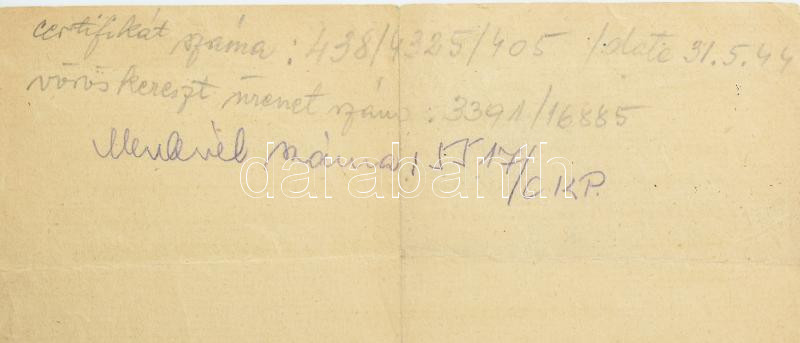 certifikát száma : 438/4325/405 /date 31.5.44
vöröskereszt üzenet szám : 3391/16885
Menlevél száma : 5517/CKP.
darabanth